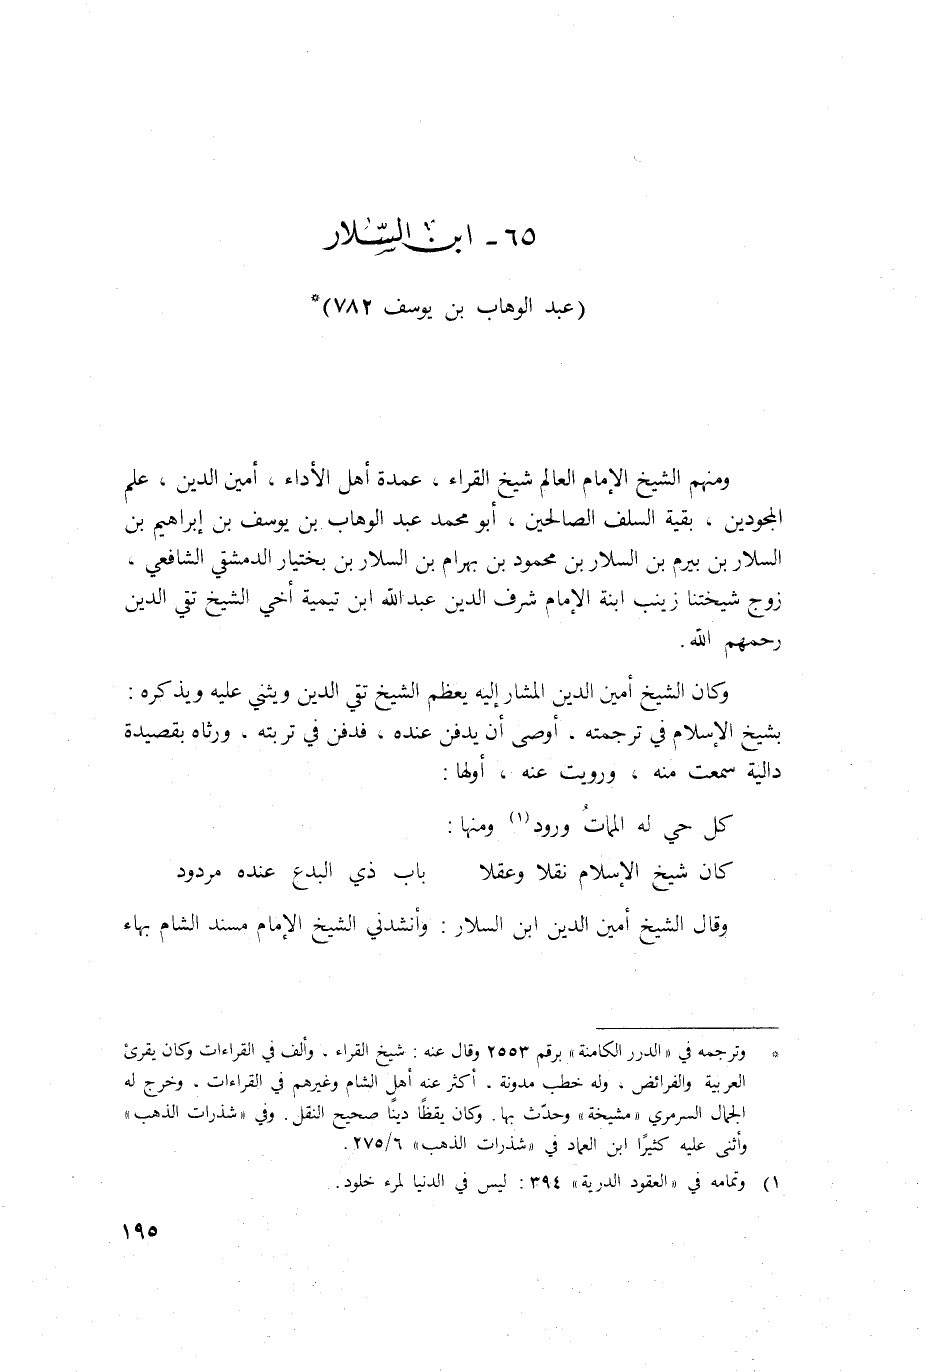 ٦٥ - ابن السّلار
(عبد الوهاب بن يوسف ٧٨٢)*
ومنهم الشيخ الإمام العالم شيخ القراء ، عمدة أهل الأداء ، أمين الدين ، علم
المجودين ، بقية السلف الصالحين ، أبو محمد عبد الوهاب بن يوسف بن إبراهيم بن
السلار بن بيرم بن السلار بن محمود بن بهرام بن السلار بن بختيار الدمشقي الشافعي ،
زوج شيختنا زينب ابنة الإمام شرف الدين عبد الله ابن تيمية أخي الشيخ تقي الدين
رحمهم الله .
وكان الشيخ أمين الدين المشار إليه يعظم الشيخ تقي الدين ويثني عليه ويذكره :
بشيخ الإسلام في ترجمته . أوصى أن يدفن عنده ، فدفن في تربته . ورثاه بقصيدة
دالية سمعت منه ، ورويت عنه ، أولها :
كل حي له المماتُ ورود(١) ومنها :
كان شيخ الإسلام نقلا وعقلا باب ذي البدع عنده مردود
وقال الشيخ أمين الدين ابن السلار : وأنشدني الشيخ الإمام مسند الشام بهاء
* وترجمه في «الدرر الكامنة» برقم ٢٥٥٣ وقال عنه : شيخ القراء . وألف في القراءات وكان يقرئ
العربية والفرائض ، وله خطب مدونة . أكثر عنه أهل الشام وغيرهم في القراءات . وخرج له
الجمال السرمري «مشيخة» وحدّث بها . وكان يقظًا دينًا صحيح النقل . وفي «شذرات الذهب»
وأثنى عليه كثيرًا ابن العماد في «شذرات الذهب» ٢٧٥/٦ .
١) وتمامه في «العقود الدرية» ٣٩٤ : ليس في الدنيا لمرء خلود .
١٩٥